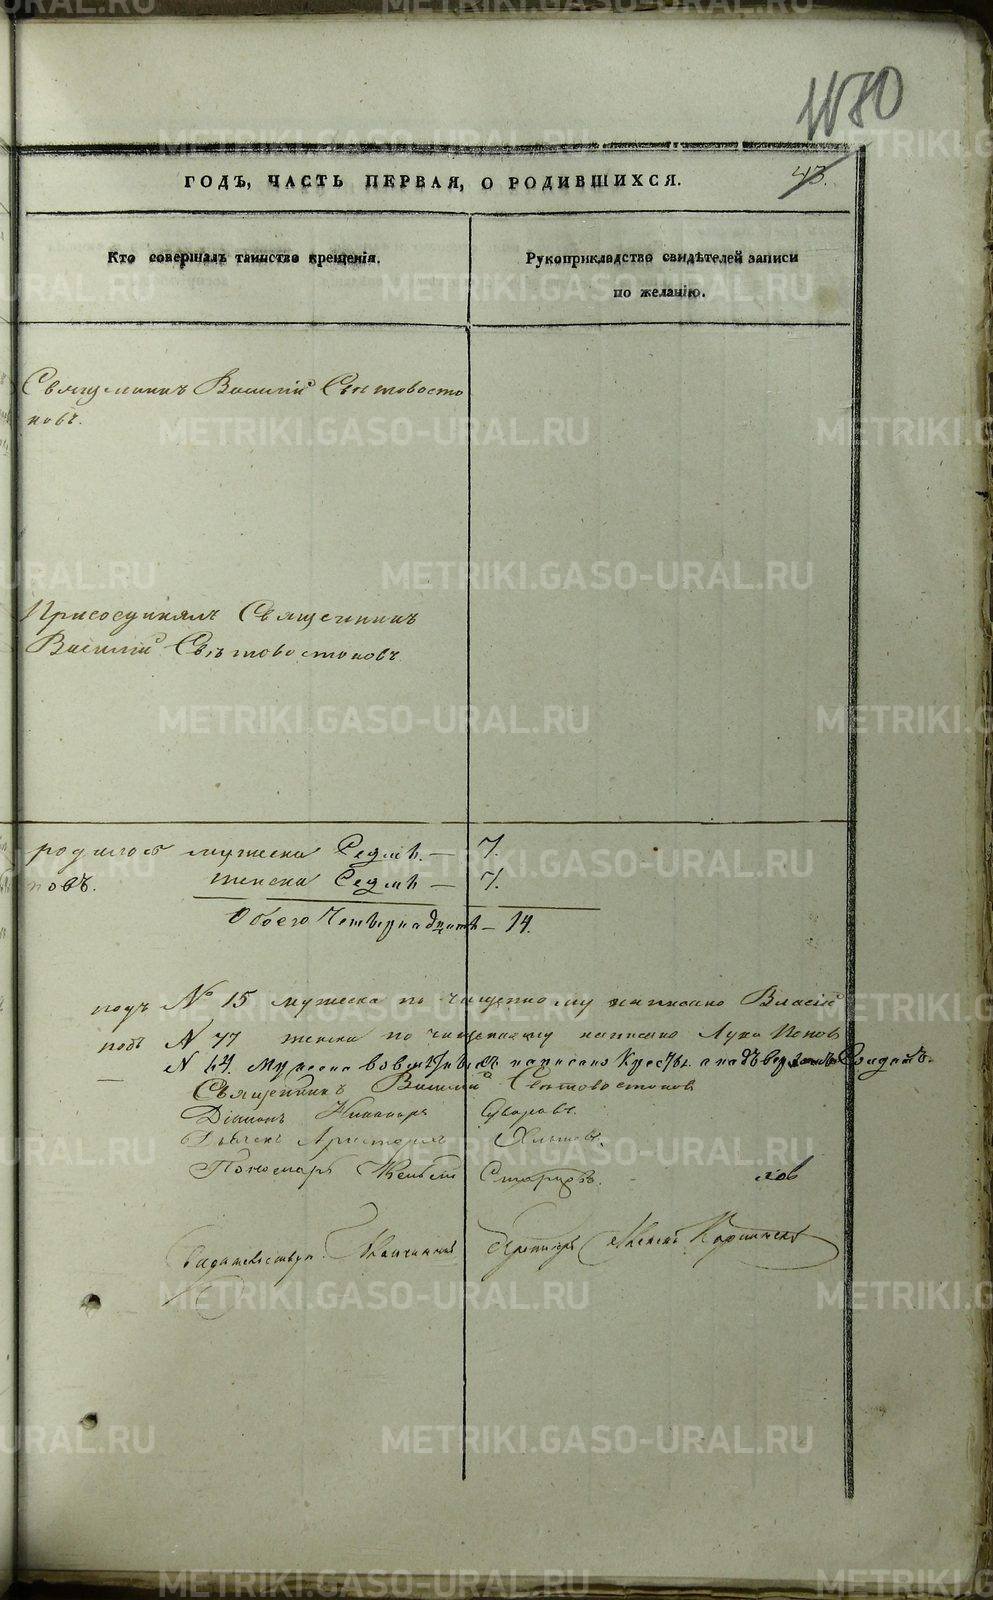 1180
43.
ГОДЪ, ЧАСТЬ ПЕРВАЯ, О РОДИВШИХСЯ.
Кто совершалъ таинство крещенія.
Рукоприкладство свидѣтелей записи
по желанію.
Священникъ Василій Свѣтовосто
ковъ.
Присоединялъ Священникъ
Василій Свѣтовостоковъ
родилось мужеска Седмь. — 7.
новъ. женска Седмь — 7.
Обоего Четырнадцать — 14.
подъ № 15 мужеска по чищенному написано Власій
подъ N 77 женска по чищенному написано Лука
N 64. мужеска написано Крестья. а надъ Солдатъ.
Священникъ Василій Свѣтовостоковъ
Діаконъ Никаноръ
Дьячекъ
Пономарь Старцовъ.
METRIKI.GASO-URAL.RU